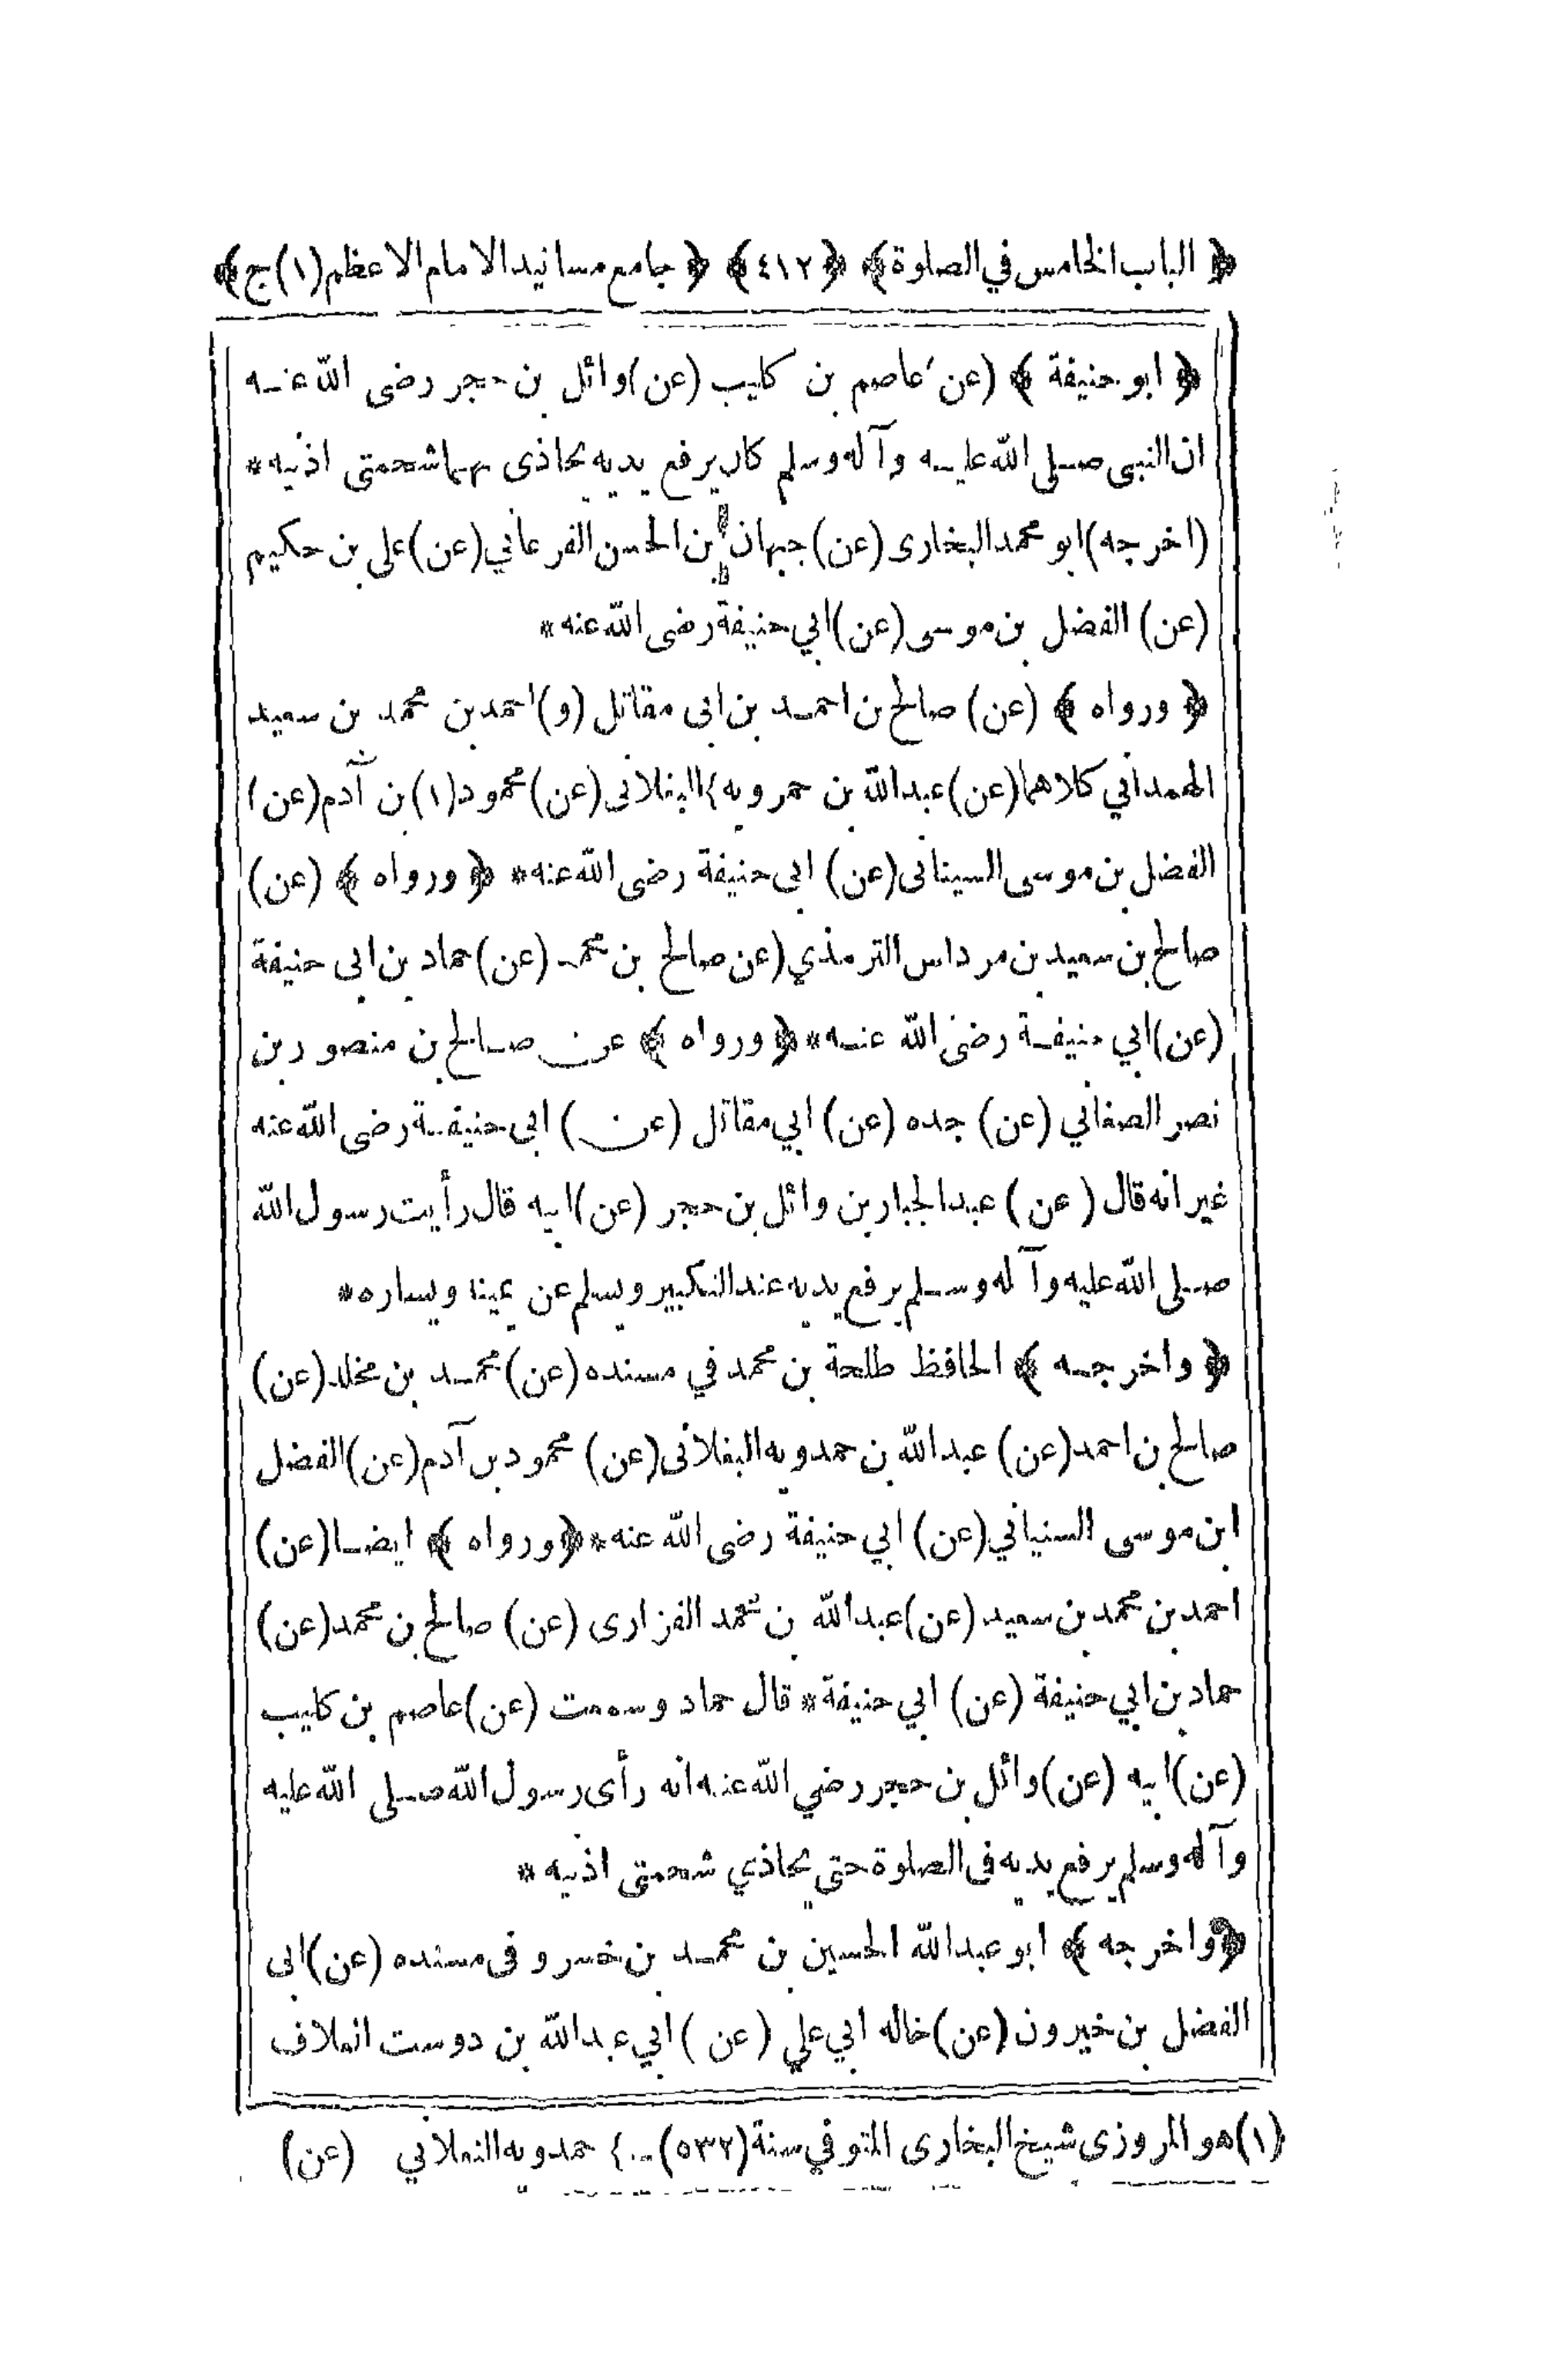 ﴿ الباب الخامس في الصلوة ﴾ ﴿ ٤١٢ ﴾ ﴿ جامع مسانيد الامام الاعظم (١) ج ﴾
﴿ ابو حنيفة ﴾ (عن عاصم بن كليب (عن) وائل بن حجر رضى الله عنه
ان النبى صلى الله عليه وآله وسلم كان يرفع يديه يحاذى بهما شحمتى اذنيه *
(اخرجه) ابو محمد البخارى (عن) جبهان بن الحسن الفرغاني (عن) على بن حكيم
(عن) الفضل بن موسى (عن) ابي حنيفة رضى الله عنه *
﴿ ورواه ﴾ (عن) صالح بن احمد بن ابى مقاتل (و) احمد بن محمد بن سعيد
الهمداني كلاهما (عن) عبد الله بن حمرويه } البغلانى (عن) محمود (١) بن آدم (عن)
الفضل بن موسى السينانى (عن) ابى حنيفة رضى الله عنه * ﴿ ورواه ﴾ (عن)
صالح بن سعيد بن مرداس الترمذي (عن صالح بن محمد (عن) حماد بن ابى حنيفة
(عن) ابي حنيفة رضى الله عنه * ﴿ ورواه ﴾ عن صالح بن منصور بن
نصر الصغاني (عن) جده (عن) ابي مقاتل (عن) ابى حنيفة رضى الله عنه
غير انه قال (عن) عبد الجبار بن وائل بن حجر (عن) ابيه قال رأيت رسول الله
صلى الله عليه وآله وسلم يرفع يديه عند التكبير ويسلم عن يمينا ويساره *
﴿ واخرجه ﴾ الحافظ طلحة بن محمد في مسنده (عن) محمد بن مخلد (عن)
صالح بن احمد (عن) عبد الله بن حمدويه البغلانى (عن) محمود بن آدم (عن) الفضل
ابن موسى السنياني (عن) ابي حنيفة رضى الله عنه * ﴿ ورواه ﴾ ايضا (عن)
احمد بن محمد بن سعيد (عن) عبد الله بن محمد الفزارى (عن) صالح بن محمد (عن)
حماد بن ابي حنيفة (عن) ابي حنيفة * قال حماد وسمعت (عن) عاصم بن كليب
(عن) ابيه (عن) وائل بن حجر رضي الله عنه انه رأى رسول الله صلى الله عليه
وآله وسلم يرفع يديه فى الصلوة حتى يحاذي شحمتى اذنيه *
﴿ واخرجه ﴾ ابو عبد الله الحسين بن محمد بن خسرو فى مسنده (عن) ابى
الفضل بن خيرون (عن) خاله ابي علي (عن) ابي عبد الله بن دوست العلاف
(١) هو المروزى شيخ البخارى المتوفي سنة (٥٣٢) } حمدويه (عن)